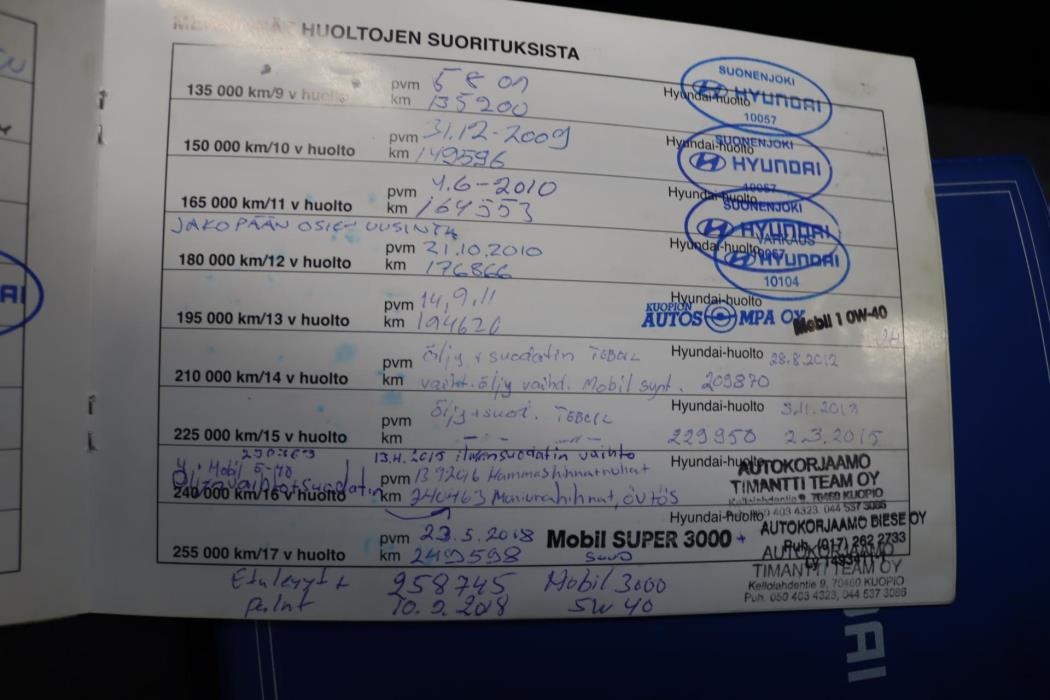 MERKINNÄT HUOLTOJEN SUORITUKSISTA
135 000 km/9 v huolto
pvm 5 8 09
km 135200
Hyundai-huolto
SUONENJOKI
HYUNDAI
10057
150 000 km/10 v huolto
pvm 31.12-2009
km 149596
Hyundai-huolto
SUONENJOKI
HYUNDAI
10057
165 000 km/11 v huolto
pvm 4.6-2010
km 164553
Hyundai-huolto
SUONENJOKI
HYUNDAI
10057
JAKOPÄÄN OSIEN UUSINTA
180 000 km/12 v huolto
pvm 21.10.2010
km 176866
Hyundai-huolto
VARKAUS
HYUNDAI
10104
195 000 km/13 v huolto
pvm 14.9.11
km 194620
Hyundai-huolto
KUOPION
AUTOSOMPA OY
Mobil 1 0W-40
210 000 km/14 v huolto
pvm Öljy + suodatin TEBOIL
km vaiht. öljy vaihd. Mobil synt. 209870
Hyundai-huolto 28.8.2012
225 000 km/15 v huolto
pvm Öljy+suod. TEBOIL
km
Hyundai-huolto 3.11.2013
229950 2.3.2015
13.4.2015 ilmansuodatin vaihto
Mobil
Öljynvaihto+suodatin
240 000 km/16 v huolto
pvm Hammashihnat
km 240463
Hyundai-huolto
AUTOKORJAAMO
TIMANTTI TEAM OY
Kellolahdentie 9, 70460 KUOPIO
Puh. 050 403 4323, 044 537 3086
255 000 km/17 v huolto
pvm 23.5.2018
km 249598
Mobil SUPER 3000 +
suod
Hyundai-huolto
AUTOKORJAAMO BIESE OY
Puh. (017) 262 2733
AUTOKORJAAMO
TIMANTTI TEAM OY
Kellolahdentie 9, 70460 KUOPIO
Puh. 050 403 4323, 044 537 3086
Etulevyt + 258745 Mobil 3000
palat 10.9.2018 5W40
DAI
AI